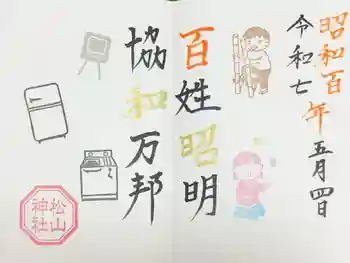 昭和百年五月四日
令和七
百姓昭明
協和万邦
松山神社